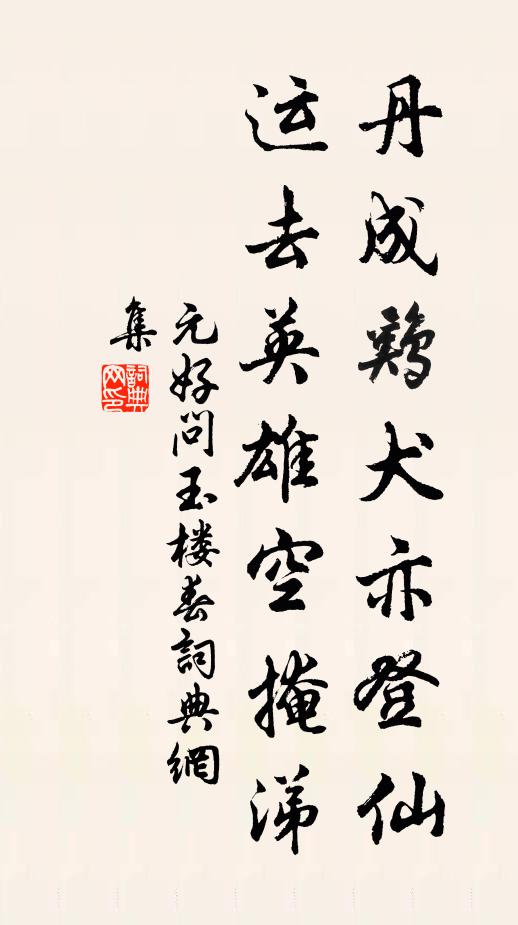 丹成鷄犬亦登仙
运去英雄空掩涕
元好问玉楼春詞典網
集
詞典網印